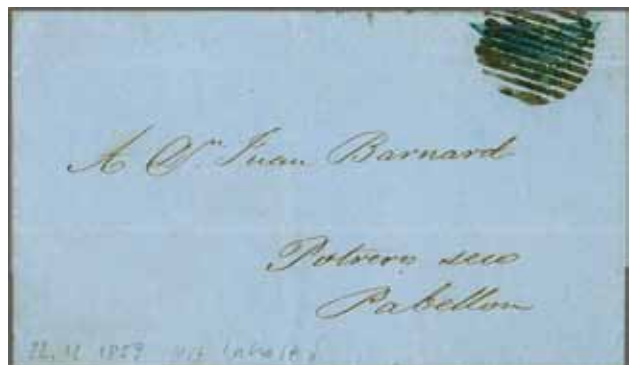 A Dn. Juan Barnard
Potrero seco
Pabellon
22.12 1859 mit Inhalt